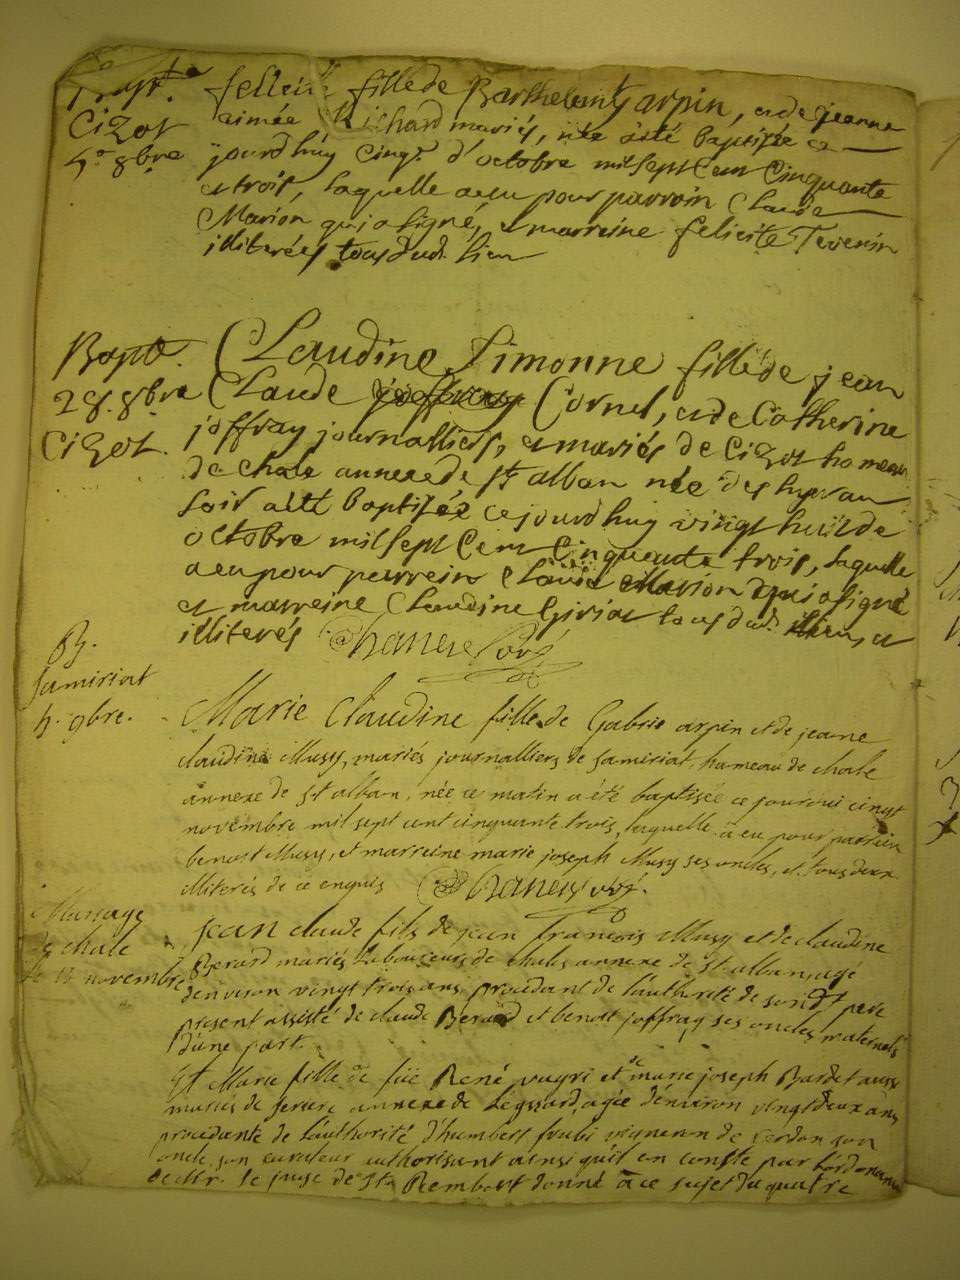 Bapt.
Cizot
5e 8bre
fellicité fille de Barthelemy arpin, et de jeanne
aimée Richard mariés, née a été baptisée ce
jourd'huy cinq.e d'octobre mil sept cent cinquante
et trois, laquelle a eu pour parrain Claude
Marion qui a signé, et marreine felicité Tevenin
illiterées tous dud. lieu
Bapt.
28. 8bre
Cizot.
Claudine Simonne fille de jean
Claude joffray Cornet, et de Catherine
joffray journalliers, et mariés de Cizot hameau
de chale annexe de st alban née des hyer au
soir a été baptisée ce jourd huy vingt huit de
octobre mil sept cent cinquante trois, laquelle
a eu pour parrein Claude Marion qui a signé
et marreine Claudine Giriat tous dud. lieu, et
illiterés Chanel curé
B.
Samiriat
5. 9bre.
Marie Claudine fille de Gabrie arpin et de jeane
claudine Musy, mariés journalliers de samiriat, hameau de chale
annexe de st alban, née ce matin a été baptisée ce jourdui cinq
novembre mil sept cent cinquante trois, laquelle a eu pour parrein
benoit Musy, et marreine marie joseph Musy ses oncles, et tous deux
illiterés de ce enquis Chanel curé.
Mariage
de chale
le 14 novembre
jean claude fils de jean francois Musy et de claudine
Berard mariés Laboureurs de chales annexe de st. alban, agé
d'environ vingt trois ans procedant de l'authorité de son dt pere
present assisté de claude Berard et benoit joffray ses oncles maternels
d'une part.
Et Marie fille de füe René vugri et de marie joseph Bardet aussi
mariés de serière annexe de Leyssard, agée d'environ vingt deux ans
procedante de l'authorité d'humbert frubi vigneron de serdon son
oncle son curateur authorisant ainsi qu'il en conste par l'ordonnance
de Mr. le juge de st Rembert donné à ce sujet du quatre